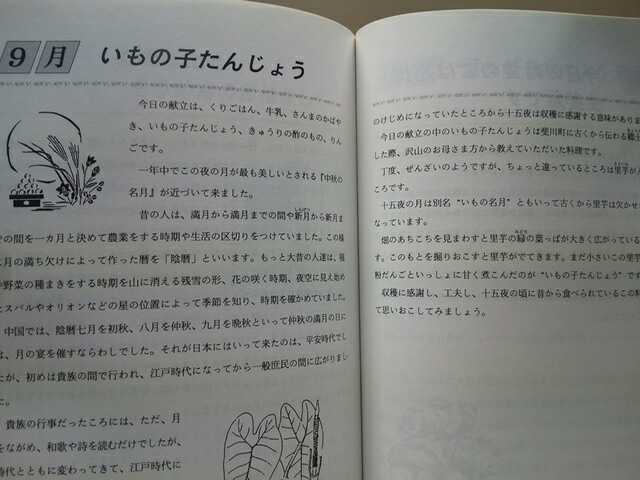 9月 いもの子たんじょう
今日の献立は、くりごはん、牛乳、さんまのかばや
き、いもの子たんじょう、きゅうりの酢のもの、りん
ごです。
一年中でこの夜の月が最も美しいとされる『中秋の
名月』が近づいて来ました。
昔の人は、満月から満月までの間や新月から新月ま
での間を一カ月と決めて農業をする時期や生活の区切りをつけていました。この様
に月の満ち欠けによって作った暦を「陰暦」といいます。もっと大昔の人達は、種
や野菜の種まきをする時期を山に消える残雪の形、花の咲く時期、夜空に見え始め
スバルやオリオンなどの星の位置によって季節を知り、時期を確かめていました。
中国では、陰暦七月を初秋、八月を仲秋、九月を晩秋といって仲秋の満月の日に
は、月の宴を催すならわしでした。それが日本にはいって来たのは、平安時代でし
たが、初めは貴族の間で行われ、江戸時代になってから一般庶民の間に広がりまし
た。
貴族の行事だったころには、ただ、月
をながめ、和歌や詩を読むだけでしたが、
時代とともに変わってきて、江戸時代に
のけじめになっていたところから十五夜は収穫に感謝する意味があります
今日の献立の中のいもの子たんじょうは斐川町に古くから伝わる郷土
した際、沢山のお母さま方から教えていただいた料理です。
丁度、ぜんざいのようですが、ちょっと違っているところは里芋が入
ころです。
十五夜の月は別名“いもの名月”ともいって古くから里芋は欠かせ
なっています。
畑のあちこちを見まわすと里芋の緑の葉っぱが大きく広がっている
す。このもとを掘りおこすと里芋がでてきます。まだ小さいこの里芋
粉だんごといっしょに甘く煮こんだのが“いもの子たんじょう”です
収穫に感謝し、工夫し、十五夜の頃に昔から食べられているこの料
て思いおこしてみましょう。